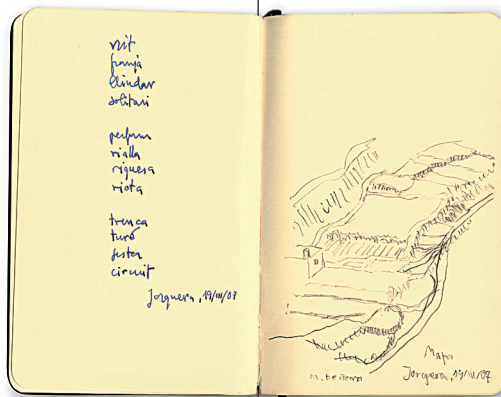 nit
franja
llindar
solitari
perfum
rialla
riquesa
riota
trenca
turó
circuit
Jorquera, 19/III/07
Mapa
Jorquera, 19/III/07